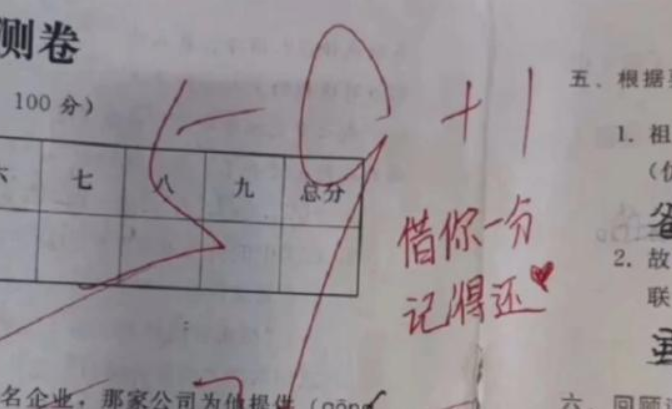 测卷
100 分)
59+1
六 七 八 九 总分
借你一分
记得还
名企业，那家公司为他提供（gōng
五、根据
1. 祖
2. 故
联
六、回顾